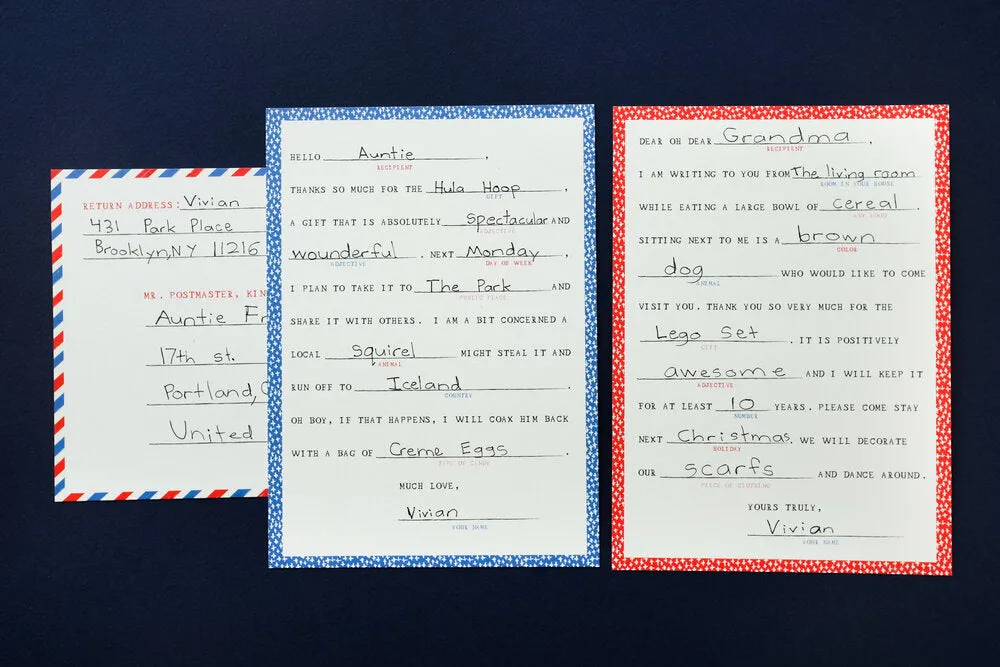 RETURN ADDRESS: Vivian
431 Park Place
Brooklyn, NY 11216
MR. POSTMASTER, KIN
Auntie Fr
17th st.
Portland,
United
HELLO Auntie,
RECIPIENT
THANKS SO MUCH FOR THE Hula Hoop,
GIFT
A GIFT THAT IS ABSOLUTELY Spectacular AND
ADJECTIVE
wounderful. NEXT Monday,
ADJECTIVE DAY OF WEEK
I PLAN TO TAKE IT TO The Park AND
PUBLIC PLACE
SHARE IT WITH OTHERS. I AM A BIT CONCERNED A
LOCAL squirel MIGHT STEAL IT AND
ANIMAL
RUN OFF TO Iceland.
COUNTRY
OH BOY, IF THAT HAPPENS, I WILL COAX HIM BACK
WITH A BAG OF Creme Eggs.
TYPE OF CANDY
MUCH LOVE,
Vivian
YOUR NAME
DEAR OH DEAR Grandma,
RECIPIENT
I AM WRITING TO YOU FROM The living room
ROOM IN YOUR HOUSE
WHILE EATING A LARGE BOWL OF cereal.
ANY FOOD
SITTING NEXT TO ME IS A brown
COLOR
dog WHO WOULD LIKE TO COME
ANIMAL
VISIT YOU. THANK YOU SO VERY MUCH FOR THE
Lego Set. IT IS POSITIVELY
GIFT
awesome AND I WILL KEEP IT
ADJECTIVE
FOR AT LEAST 10 YEARS. PLEASE COME STAY
NUMBER
NEXT Christmas. WE WILL DECORATE
HOLIDAY
OUR scarfs AND DANCE AROUND.
PIECE OF CLOTHING
YOURS TRULY,
Vivian
YOUR NAME